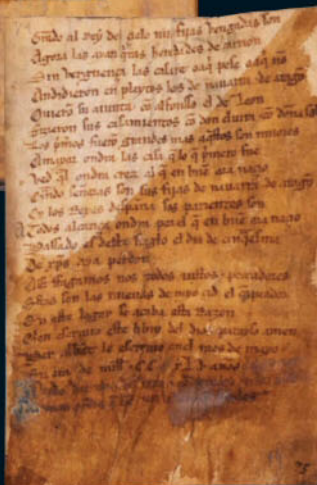 Grado al Rey del çielo mis fijas vengadas son
Agora las ayan q̃tas heredades de carrion
Sin verguença las casare o aq̃ pese o aq̃ nõ
Andidieron en pleytos los de nauarra ⁊ de aragõ
Ouierõ su aiunta cõ alfonsso el de Leon
Fizieron sus casamientos cõ don eluira ⁊ cõ doña sol
Los p̃meros fuerõ grandes mas aq̃stos son miiores
A mayor ondra las casa q̃ lo q̃ p̃mero fue
Ved q̃l ondra creçe al q̃ en buẽ ora naçio
Q̃ndo señoras son sus fijas de nauarra ⁊ de aragõ
Oy los Reyes despaña sos parientes son
A todos alcança ondra por el q̃ en buẽ ora naçio
Passado es deste sieglo el dia de cinq̃esma
De xp̃s aya perdon
Assi ffagamos nos todos iustos ⁊ peccadores
Estas son las nueuas de myo çid el cãpeador
En este logar se acaba esta Razon
Quien escriuio este libro del dios parayso amen
Per abbat le escriuio en el mes de mayo
En era de mill ⁊ C.C xL.v. años